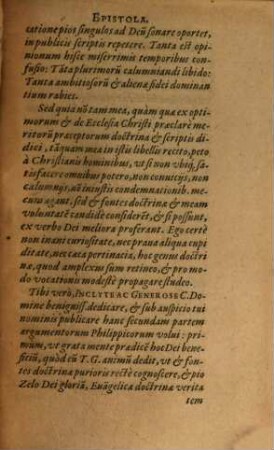 EPISTOLA.
catione pios singulos ad Deū sonare oportet,
in publicis scriptis repetere. Tanta est opi-
nionum hisce miserrimis temporibus con-
fusio: Tāta plurimorū calumniandi libido:
Tanta ambitiosorū & alienæ fidei dominan
tium rabies.
Sed quia nō tam mea, quàm quæ ex opti-
morum & de Ecclesia Christi præclarè me-
ritorū præceptorum doctrina & scriptis di-
dici, tāquam mea in istis libellis recito, peto
à Christianis hominibus, vt si non vbiq; sa-
tisfacere omnibus potero, non conuicijs, non
calumnijs, aut iniustis condemnationib. me-
cum agāt. sed & fontes doctrinæ & meam
voluntatē candidè considerēt, & si possunt,
ex verbo Dei meliora proferant. Ego certè
non inani curiositate, nec praua aliqua cupi
ditate, nec cæca pertinacia, hoc genus doctri
næ, quod amplexus sum retineo, & pro mo-
do vocationis modestè propagare studeo.
Tibi verò, INCLYTE AC GENEROSE C. Do-
mine benigniss. dedicare, & sub auspicio tui
nominis publicare hanc secundam partem
argumentorum Philippicorum volui: pri-
mùm, vt grata mente prædicē hoc Dei bene-
ficiū, quòd eū T. G. animū dedit, vt & fon-
tes doctrinæ purioris rectè cognoscere, & pio
Zelo Dei gloriā, Euāgelicæ doctrinæ verita
tem